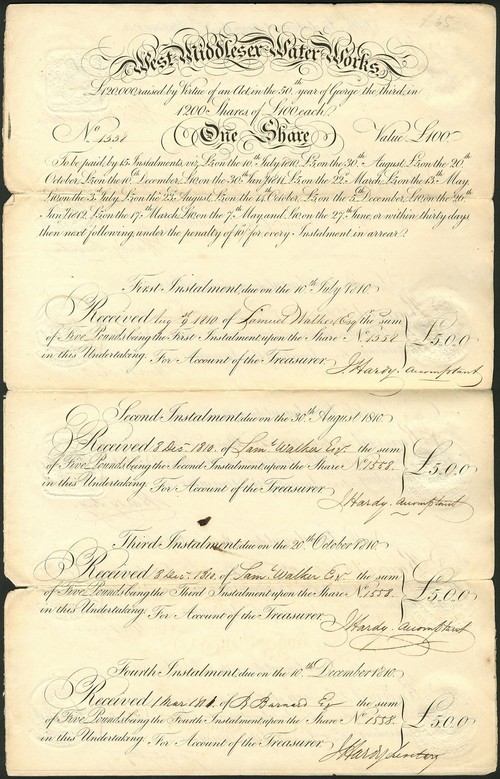 West Middlesex Water Works.
£120,000, raised by Virtue of an Act, in the 50th year of George the third, in
1200 Shares of £100 each
No. 1558 One Share Value £100.
To be paid by 15 Instalments, viz. £5 on the 10th July 1810, £5 on the 30th August, £5 on the 20th
October, £5 on the 10th December, £10 on the 30th Jany. 1811, £5 on the 22d March, £5 on the 13th May,
£10 on the 3d July, £5 on the 23d August, £5 on the 14th October, £5 on the 5th December, £10 on the 26th
Jany. 1812, £5 on the 17th March, £10 on the 7th May, and £10 on the 27th June, or within thirty days
then next following, under the penalty of 10s for every Instalment in arrear.
First Instalment, due on the 10th July 1810.
Received Aug 1810 of Samuel Walker Esq. the sum
of Five Pounds being the First Instalment upon the Share No. 1558 £5.0.0
in this Undertaking. For Account of the Treasurer.
J. Hardy. accomptant
Second Instalment, due on the 30th August 1810.
Received 8 Decr. 1810. of Saml. Walker Esqr. the sum
of Five Pounds being the Second Instalment upon the Share No. 1558. £5.0.0
in this Undertaking. For Account of the Treasurer.
J. Hardy. accomptant
Third Instalment, due on the 20th October 1810.
Received 8 Decr. 1810. of Saml. Walker Esqr the sum
of Five Pounds being the Third Instalment upon the Share No. 1558. £5.0.0
in this Undertaking. For Account of the Treasurer.
J. Hardy. accomptant
Fourth Instalment, due on the 10th December 1810.
Received 1 Mar 1811. of B Barnard Esq the sum
of Five Pounds being the Fourth Instalment upon the Share No. 1558. £5.0.0
in this Undertaking. For Account of the Treasurer.
J. Hardy